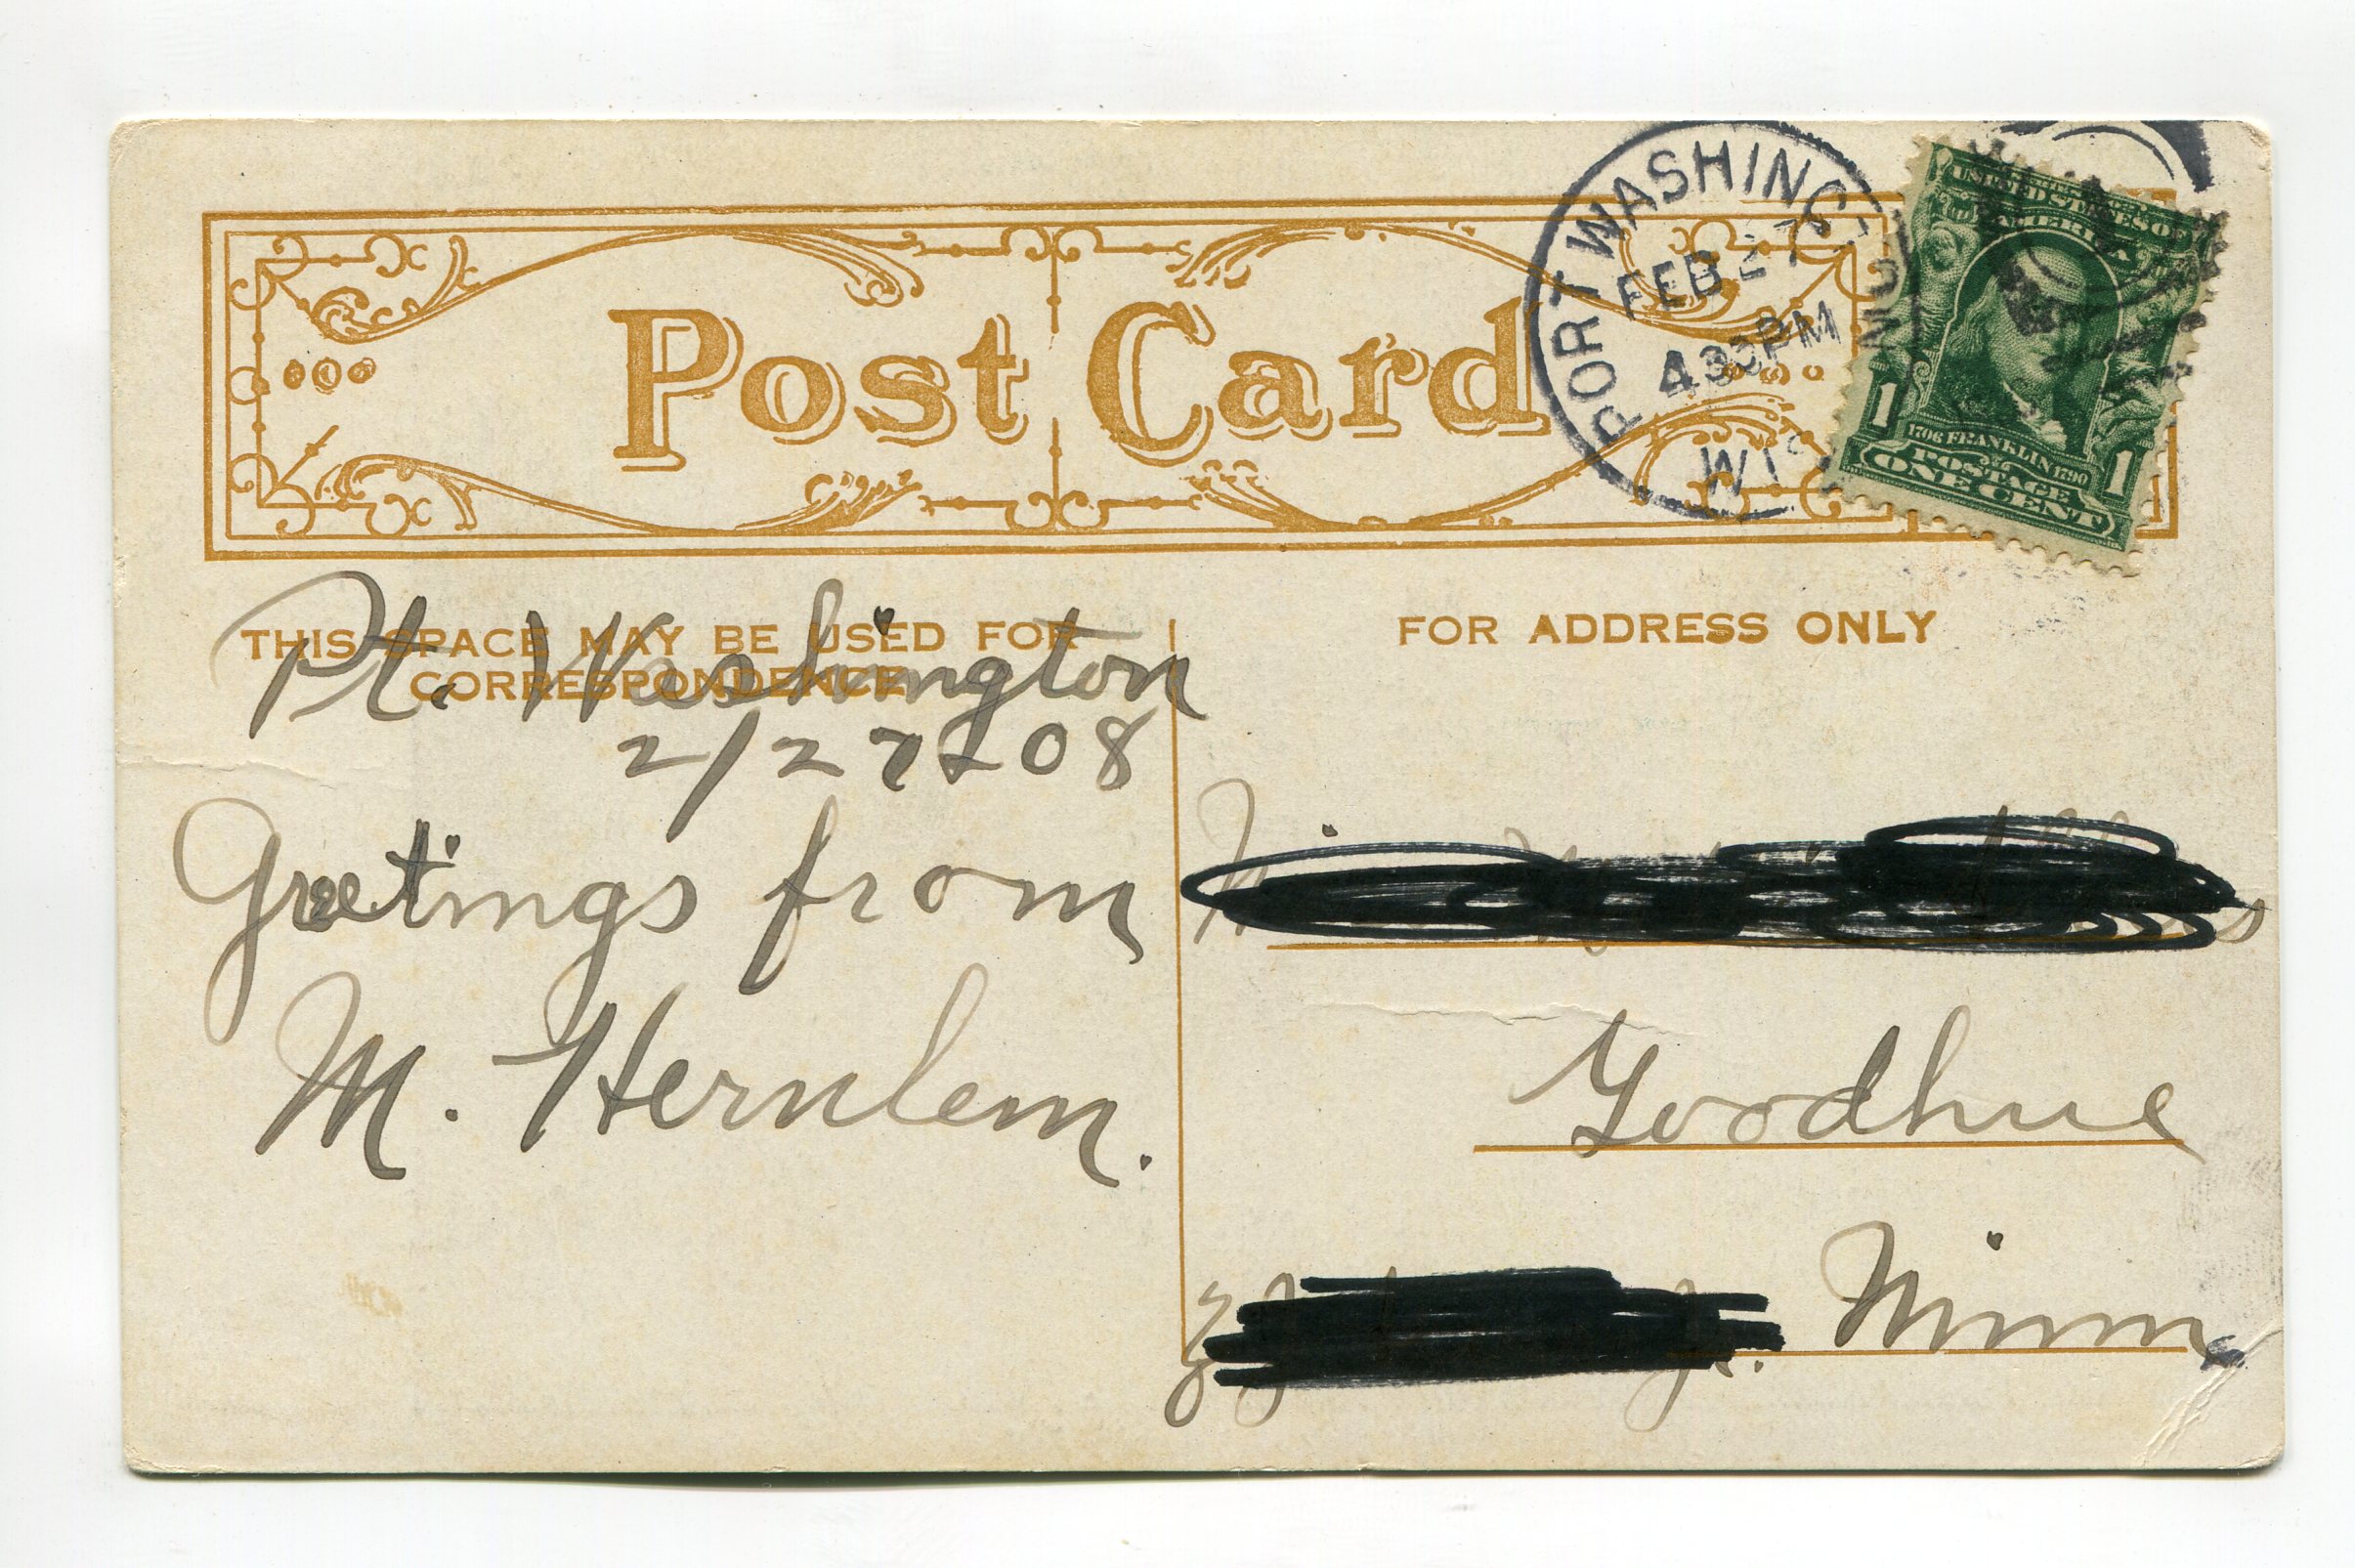 Post Card
PORT WASHINGTON
FEB 27
430 PM
WIS
UNITED STATES OF
AMERICA
1706 FRANKLIN 1790
POSTAGE
1 ONE CENT 1
THIS SPACE MAY BE USED FOR
CORRESPONDENCE
Pt. Washington
2/27 08
Greetings from
M. Hernlem.
FOR ADDRESS ONLY
Goodhue
Minn